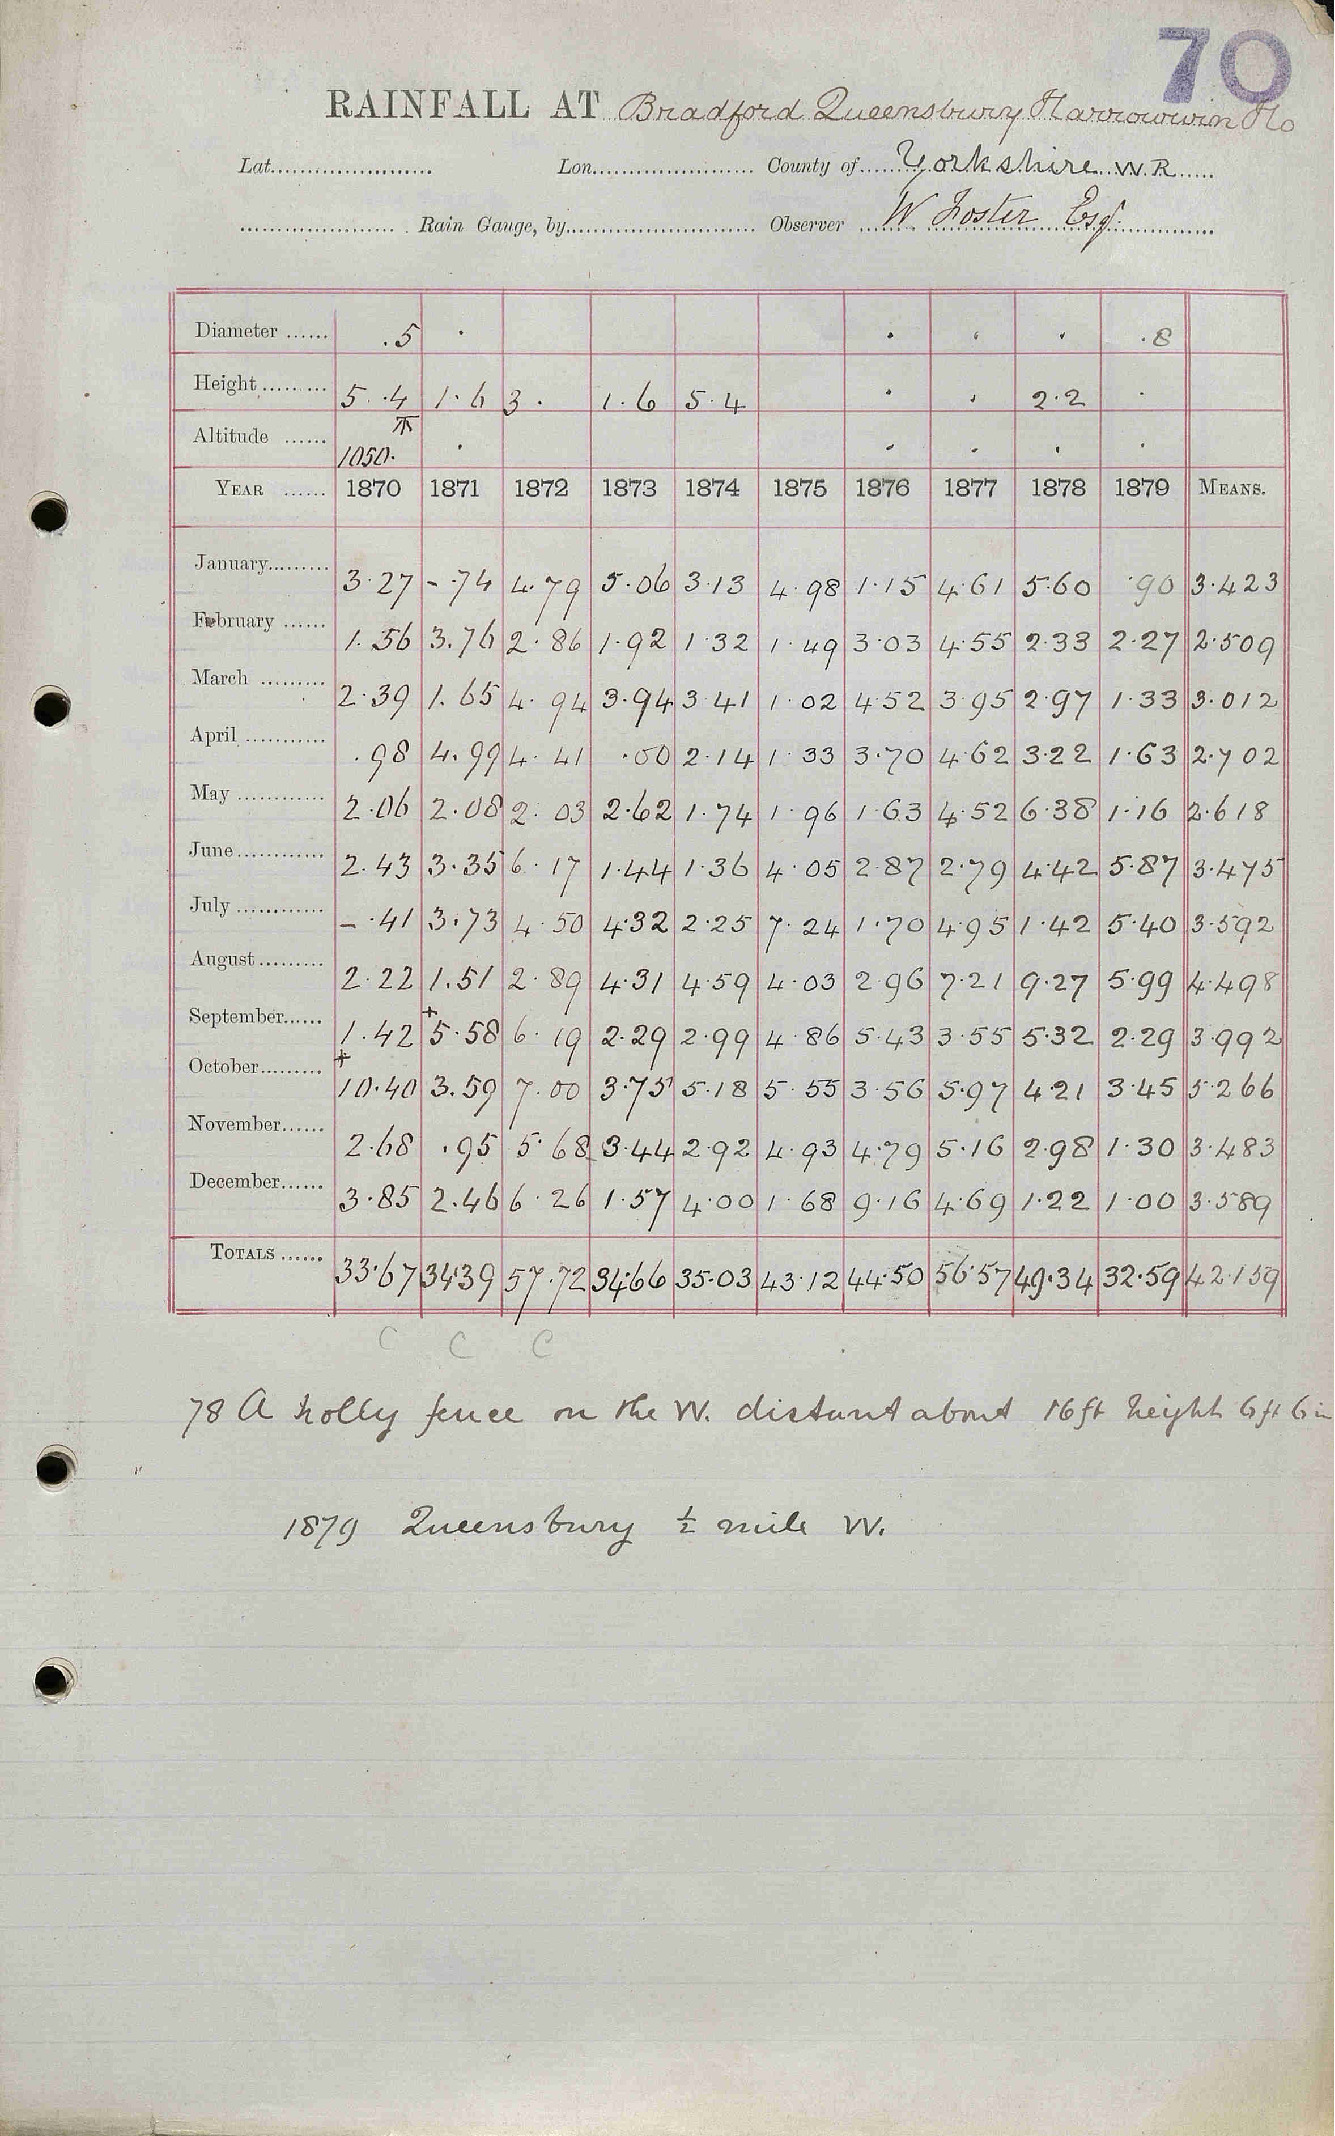 70
RAINFALL AT Bradford Queensbury Harrowwin Ho
Lat. Lon. County of Yorkshire W.R
Rain Gauge, by Observer W Foster Esq.
Diameter .5 . . . . .8
Height 5.4 1.6 3. 1.6 5.4 . . 2.2 .
Altitude 1050. . . . . .
YEAR 1870 1871 1872 1873 1874 1875 1876 1877 1878 1879 MEANS.
January 3.27 -.74 4.79 5.06 3.13 4.98 1.15 4.61 5.60 .90 3.423
February 1.56 3.76 2.86 1.92 1.32 1.49 3.03 4.55 2.33 2.27 2.509
March 2.39 1.65 4.94 3.94 3.41 1.02 4.52 3.95 2.97 1.33 3.012
April .98 4.99 4.41 .00 2.14 1.33 3.70 4.62 3.22 1.63 2.702
May 2.06 2.08 2.03 2.62 1.74 1.96 1.63 4.52 6.38 1.16 2.618
June 2.43 3.35 6.17 1.44 1.36 4.05 2.87 2.79 4.42 5.87 3.475
July -.41 3.73 4.50 4.32 2.25 7.24 1.70 4.95 1.42 5.40 3.592
August 2.22 1.51 2.89 4.31 4.59 4.03 2.96 7.21 9.27 5.99 4.498
September 1.42 +5.58 6.19 2.29 2.99 4.86 5.43 3.55 5.32 2.29 3.992
October +10.40 3.59 7.00 3.75 5.18 5.55 3.56 5.97 4.21 3.45 5.266
November 2.68 .95 5.68 3.44 2.92 4.93 4.79 5.16 2.98 1.30 3.483
December 3.85 2.46 6.26 1.57 4.00 1.68 9.16 4.69 1.22 1.00 3.589
TOTALS 33.67 34.39 57.72 34.66 35.03 43.12 44.50 56.57 49.34 32.59 42.159
C C C
78 A holly fence on the W. distant about 16ft height 6ft 6in
1879 Queensbury ½ mile W.